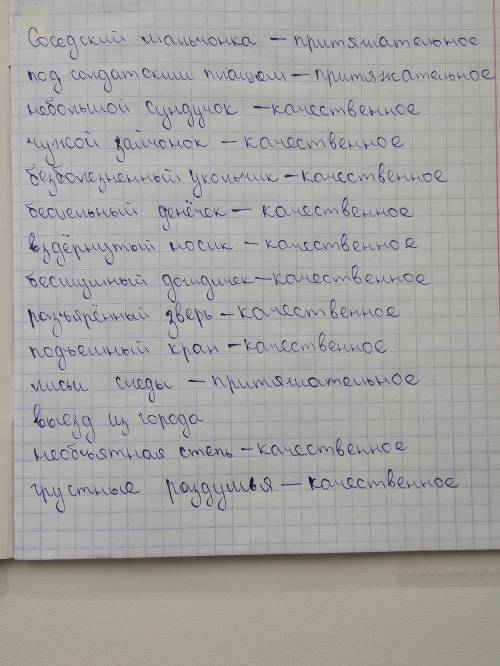 Соседский мальчонка – притяжательное
под солдатским плащом – притяжательное
небольшой сундучок – качественное
чужой зайчонок – качественное
безболезненный укольчик – качественное
бесцельный денёчек – качественное
вздёрнутый носик – качественное
бесшумный дождичек – качественное
разъярённый зверь – качественное
подъемный кран – качественное
лисьи следы – притяжательное
выезд из города
необъятная степь – качественное
грустные раздумья – качественное